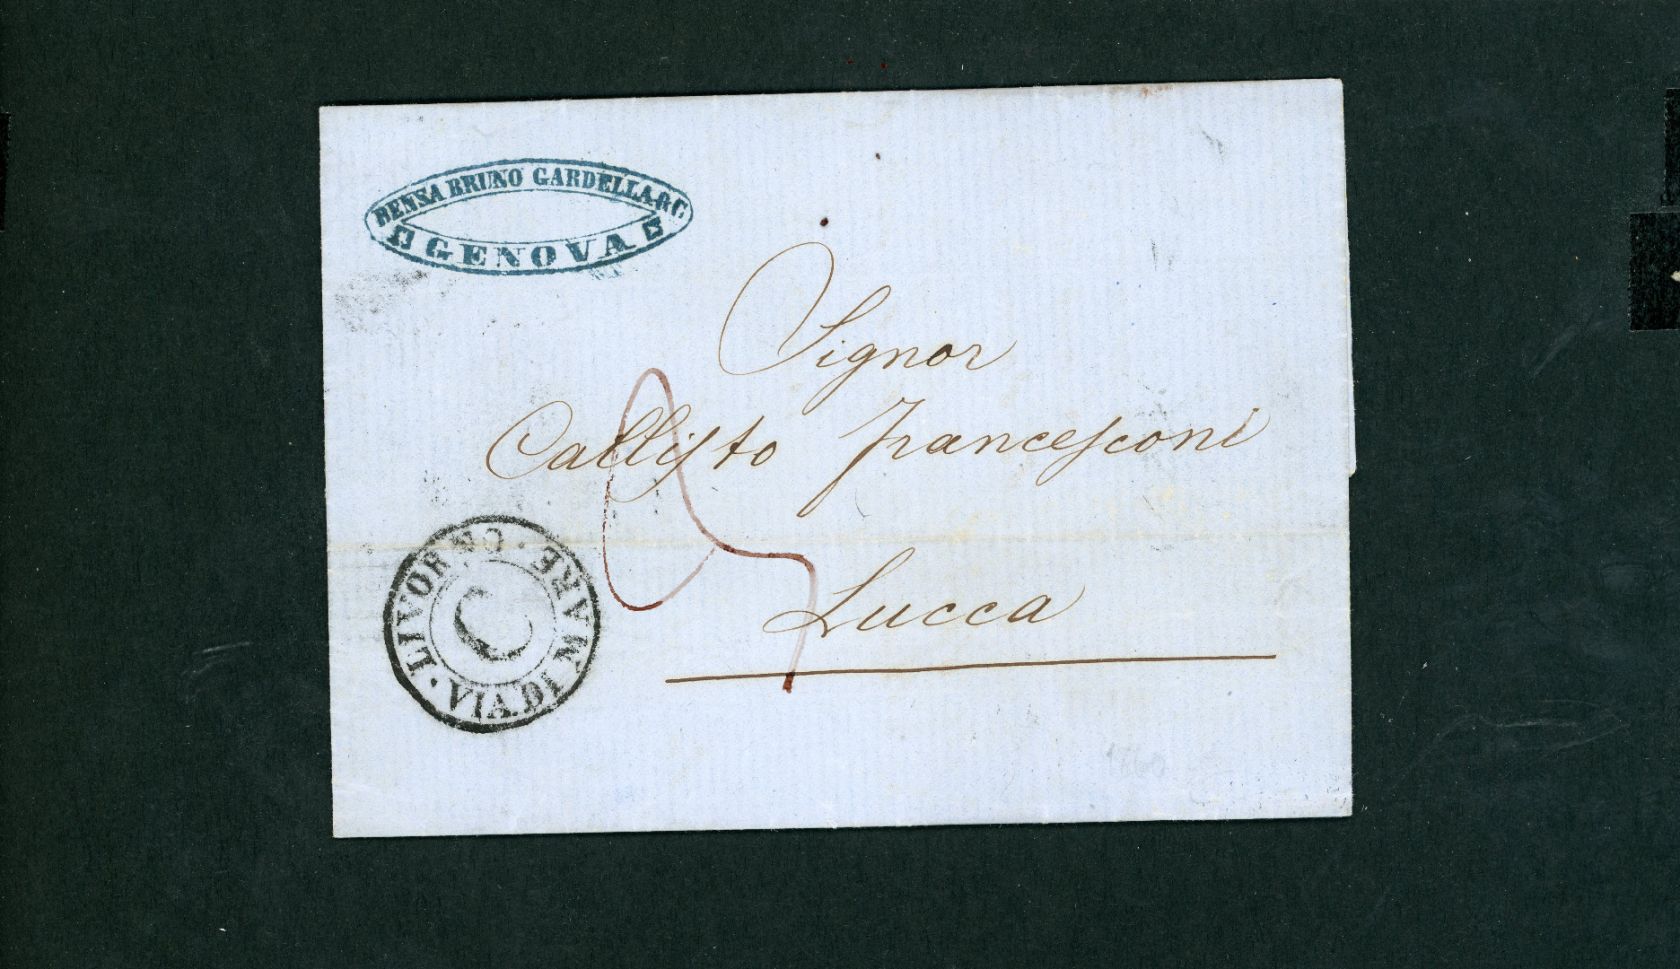 BENSA BRUNO GARDELLA & C
GENOVA
Signor
Callisto Francesconi
Lucca
VIA DI MARE
LIVOR
C
1860